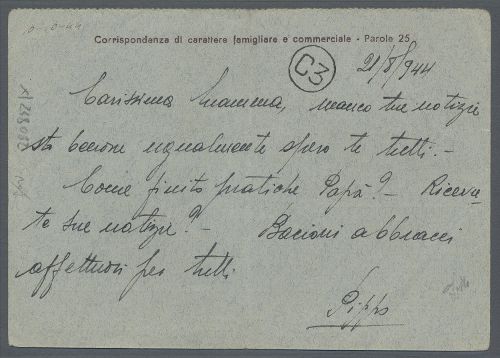 Corrispondenza di carattere famigliare e commerciale - Parole 25
C3
21/8/944
Carissima Mamma, manco tue notizie
sto benone ugualmente spero te tutti. -
Come finito pratiche Papà? - Riceve
te sue notizie? - Bacioni abbracci
affettuosi per tutti
Pippo